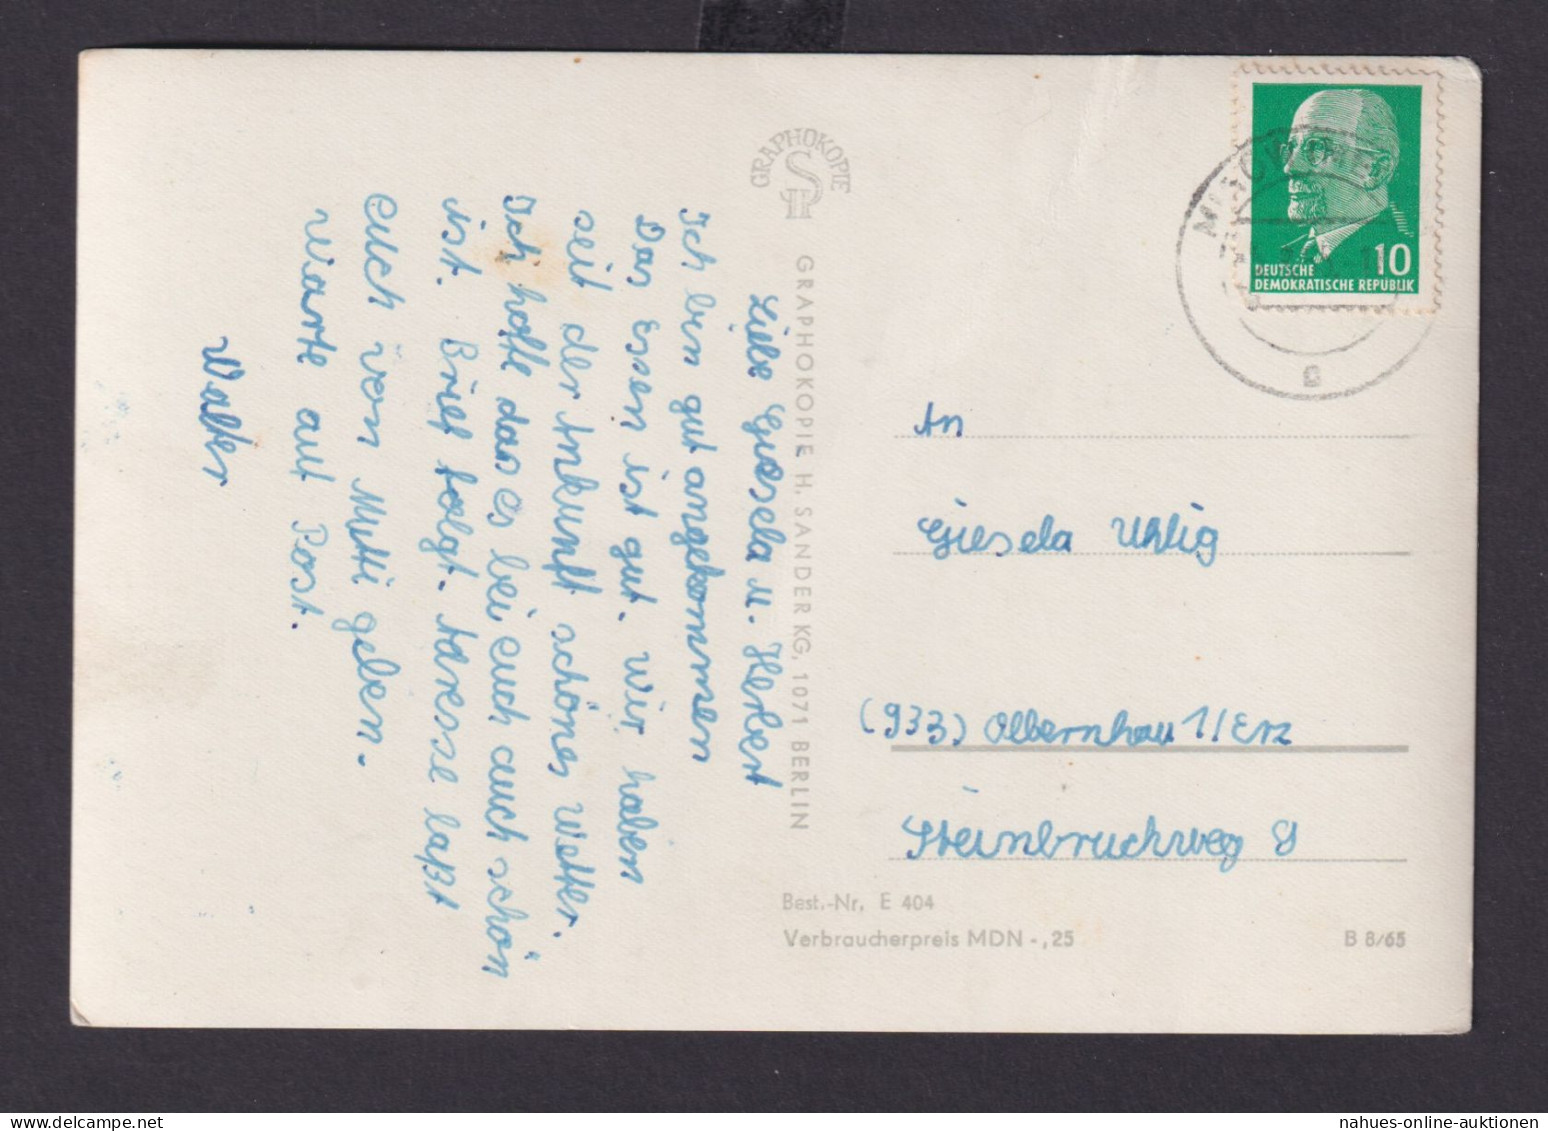 Liebe Giesela u. Herbert
Ich bin gut angekommen
Das Essen ist gut. Wir haben
seit der Ankunft schönes Wetter.
Ich hoffe das es bei euch auch schön
ist. Brief folgt. Adresse laßt
euch von Mutti geben.
Warte auf Post.
Walter
GRAPHOKOPIE
GRAPHOKOPIE H. SANDER KG, 1071 BERLIN
10
DEUTSCHE
DEMOKRATISCHE REPUBLIK
An
Giesela Uhlig
(933) Olbernhau 1/Erz
Steinbruchweg 8
Best.-Nr. E 404
Verbraucherpreis MDN -,25
B 8/65
nahues-online-auktionen